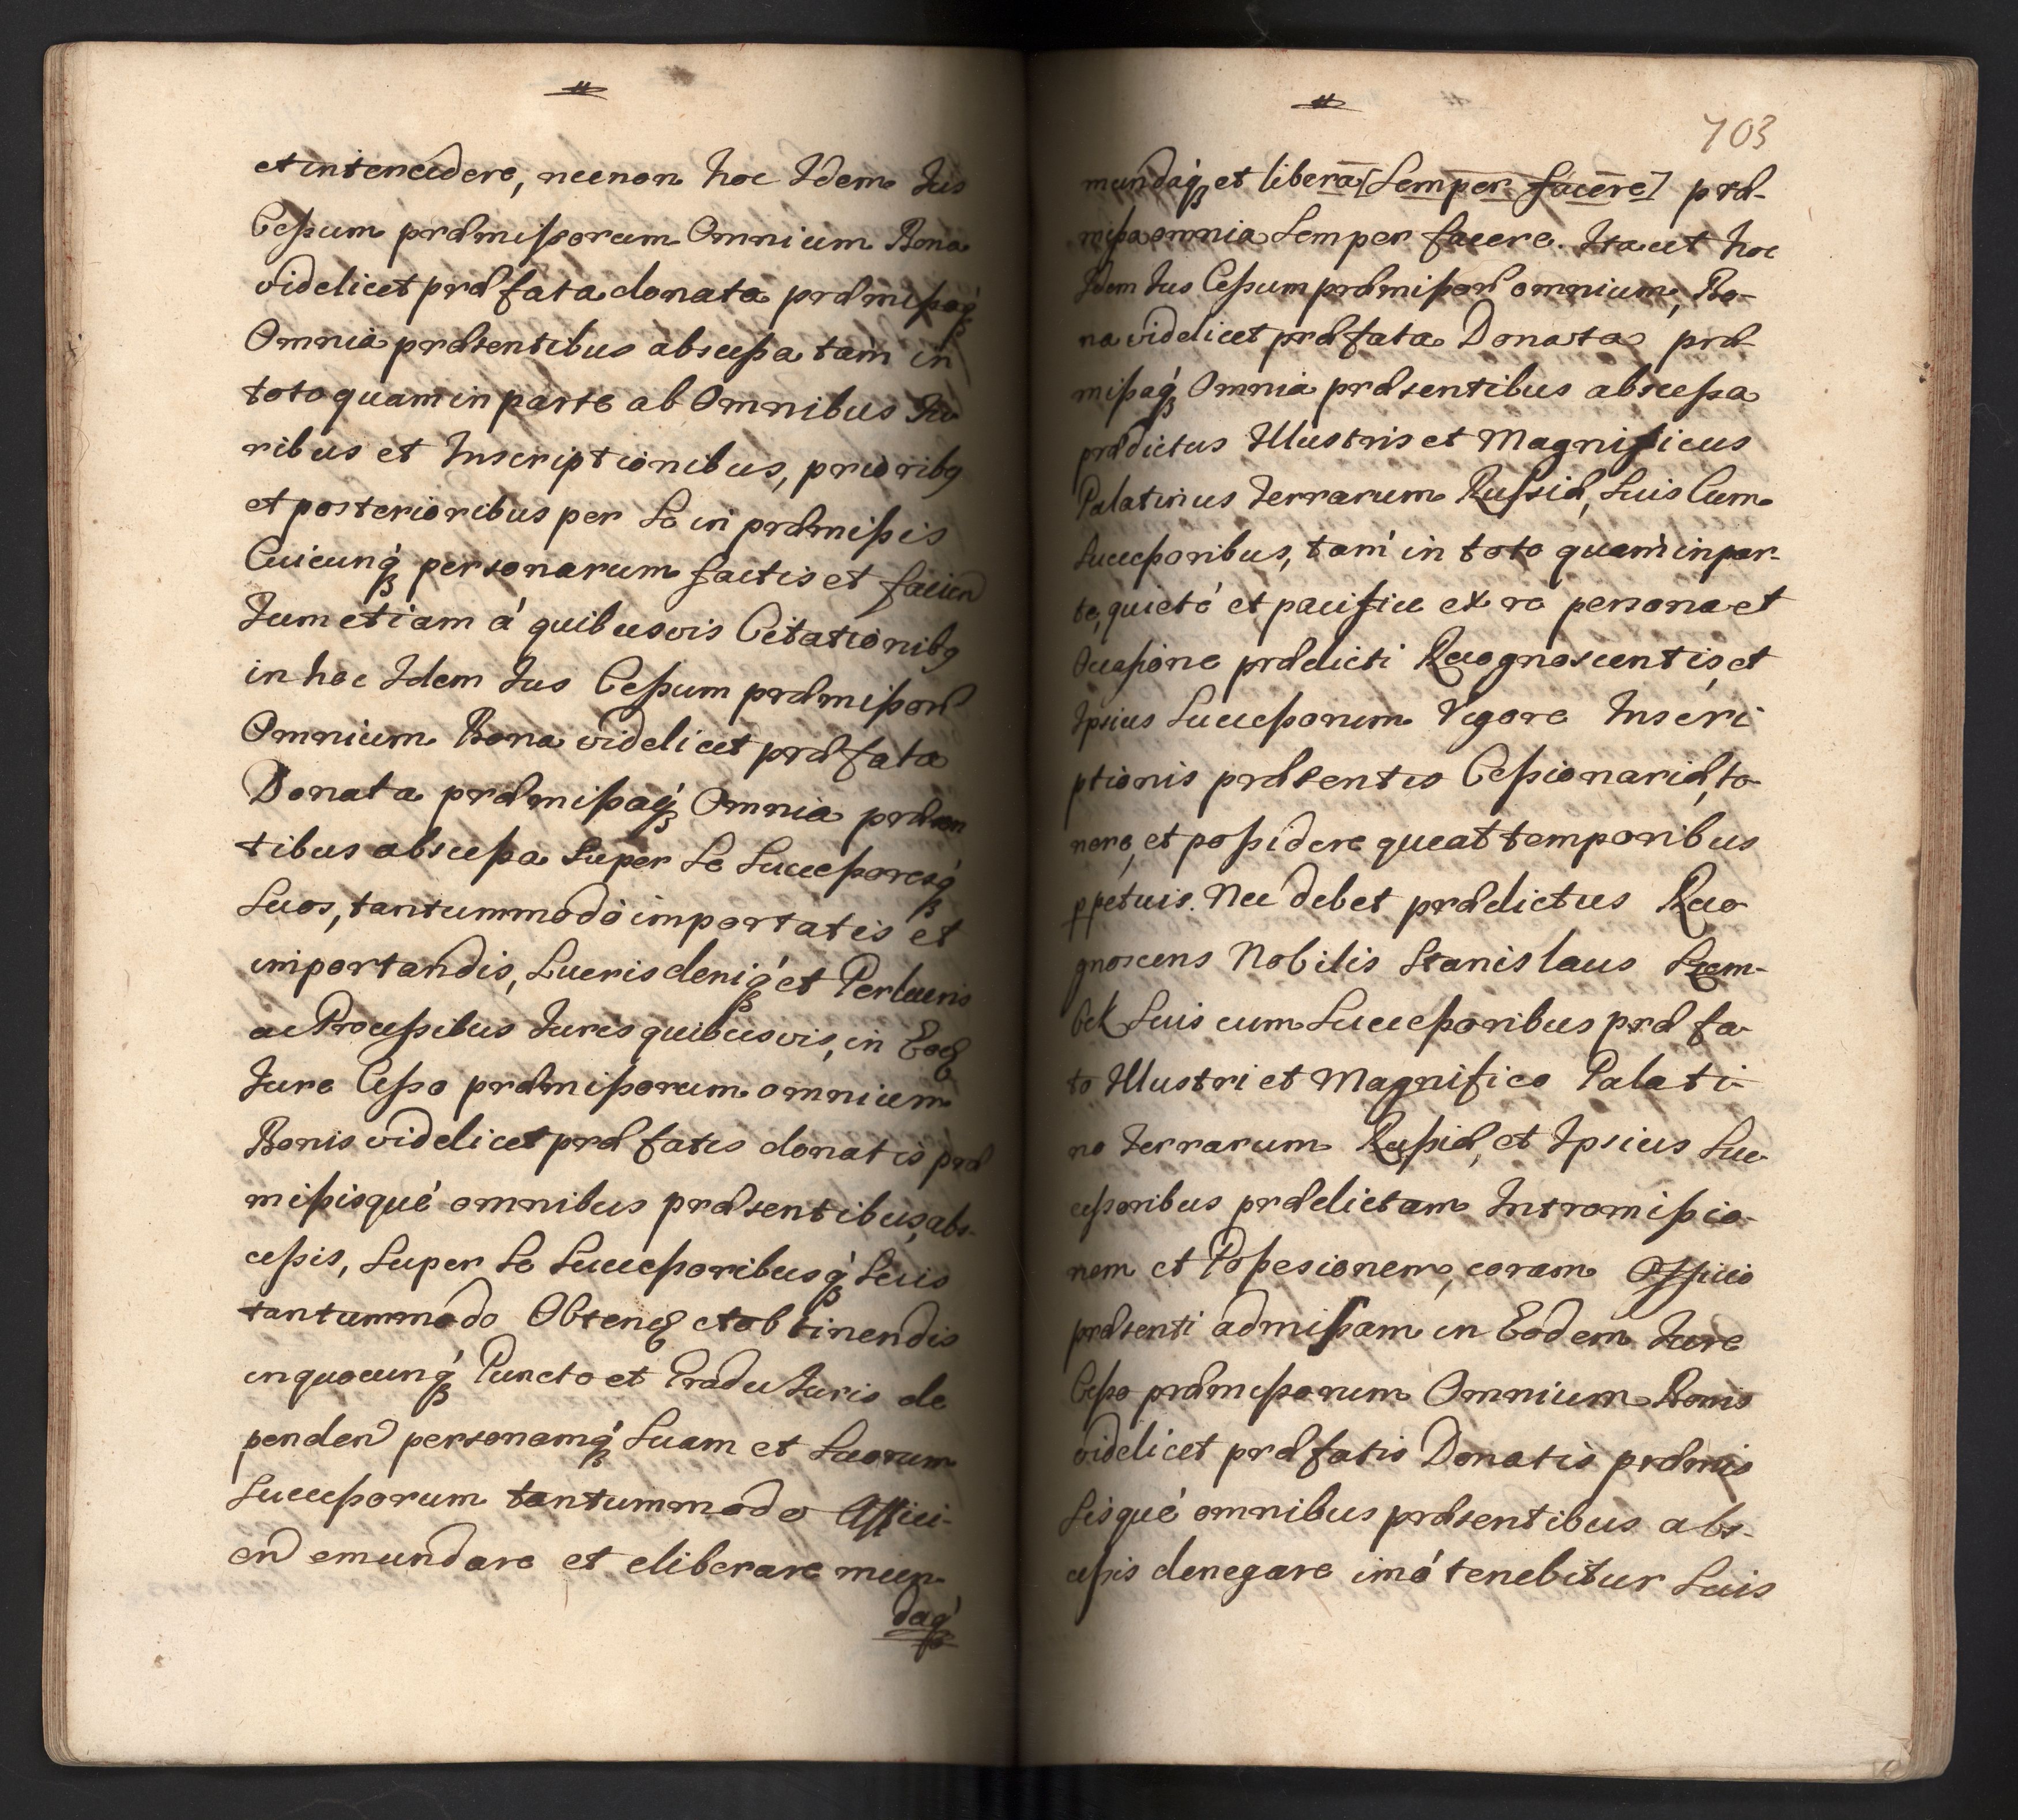 et intercedere, necnon hoc Idem Jus
Cessum præmissorum Omnium Bona
videlicet præfata donata præmissaq́ꝫ
Omnia præsentibus abscessa tam in
toto quam in parte ab Omnibus Ju
ribus et Inscriptionibus, prioribꝰ
et posterioribus per Se in præmissis
Cuicunq́ꝫ personarum factis et facien
Tum etiam á quibusvis Citationibꝰ
in hoc Idem Jus Cessum præmissor
Omnium Bona videlicet præfata
Donata præmissaq́ꝫ Omnia præsen
tibus abscessa Super Se Successoresq́ꝫ
Suos, tantummodo importatis et
importandis, Lucris deniq́ꝫ et Perlucris
ac Processibus Juris quibusvis, in Eoꝫ
Jure Cesso præmissorum omnium
Bonis videlicet præfatis donatis præ
missisqué omnibus præsentibus, abs-
cessis, Super Se Successoribusq́ꝫ Suis
tantummodo Obtenꝫ et obtinendis
in quocunq́ꝫ Puncto et Gradu Juris de
penden personamq́ꝫ Suam et Suorum
Successorum tantummodo Afficí-
en emundare et eliberare mun-
daq́ꝫ
703
mundaq́ꝫ et libera [Semper facere] præ-
missa omnia Semper facere. Ita ut hoc
Idem Jus Cessum præmissor omnium, Bo-
na videlicet præfata Donata præ-
missaq́ꝫ Omnia præsentibus abscessa
prædictus Illustris et Magnificus
Palatinus Terrarum Russiæ, Suis Cum
Successoribus, tam in toto quam in par-
te, quieté et pacifice ex re persona et
Occasione prædicti Recognoscentis, et
Ipsius Successorum Vigore Inscri
ptionis præsentis Cessionariæ, te-
nere, et possidere queat temporibus
ppetuis. Nec debet prædictus Reco
gnoscens Nobilis Stanislaus Szem-
bek Suis cum Successoribus præfa-
to Illustri et Magnifico Palati-
no Terrarum Russiæ, et Ipsius Suc-
cessoribus prædictam Intromissio-
nem et Possesionem, coram Officio
præsenti admissam in Eodem Jure
Cesso præmissorum Omnium Bonis
videlicet præfatis Donatis præmis
Sisqué omnibus præsentibus abs-
cessis denegare imó tenebitur Suis